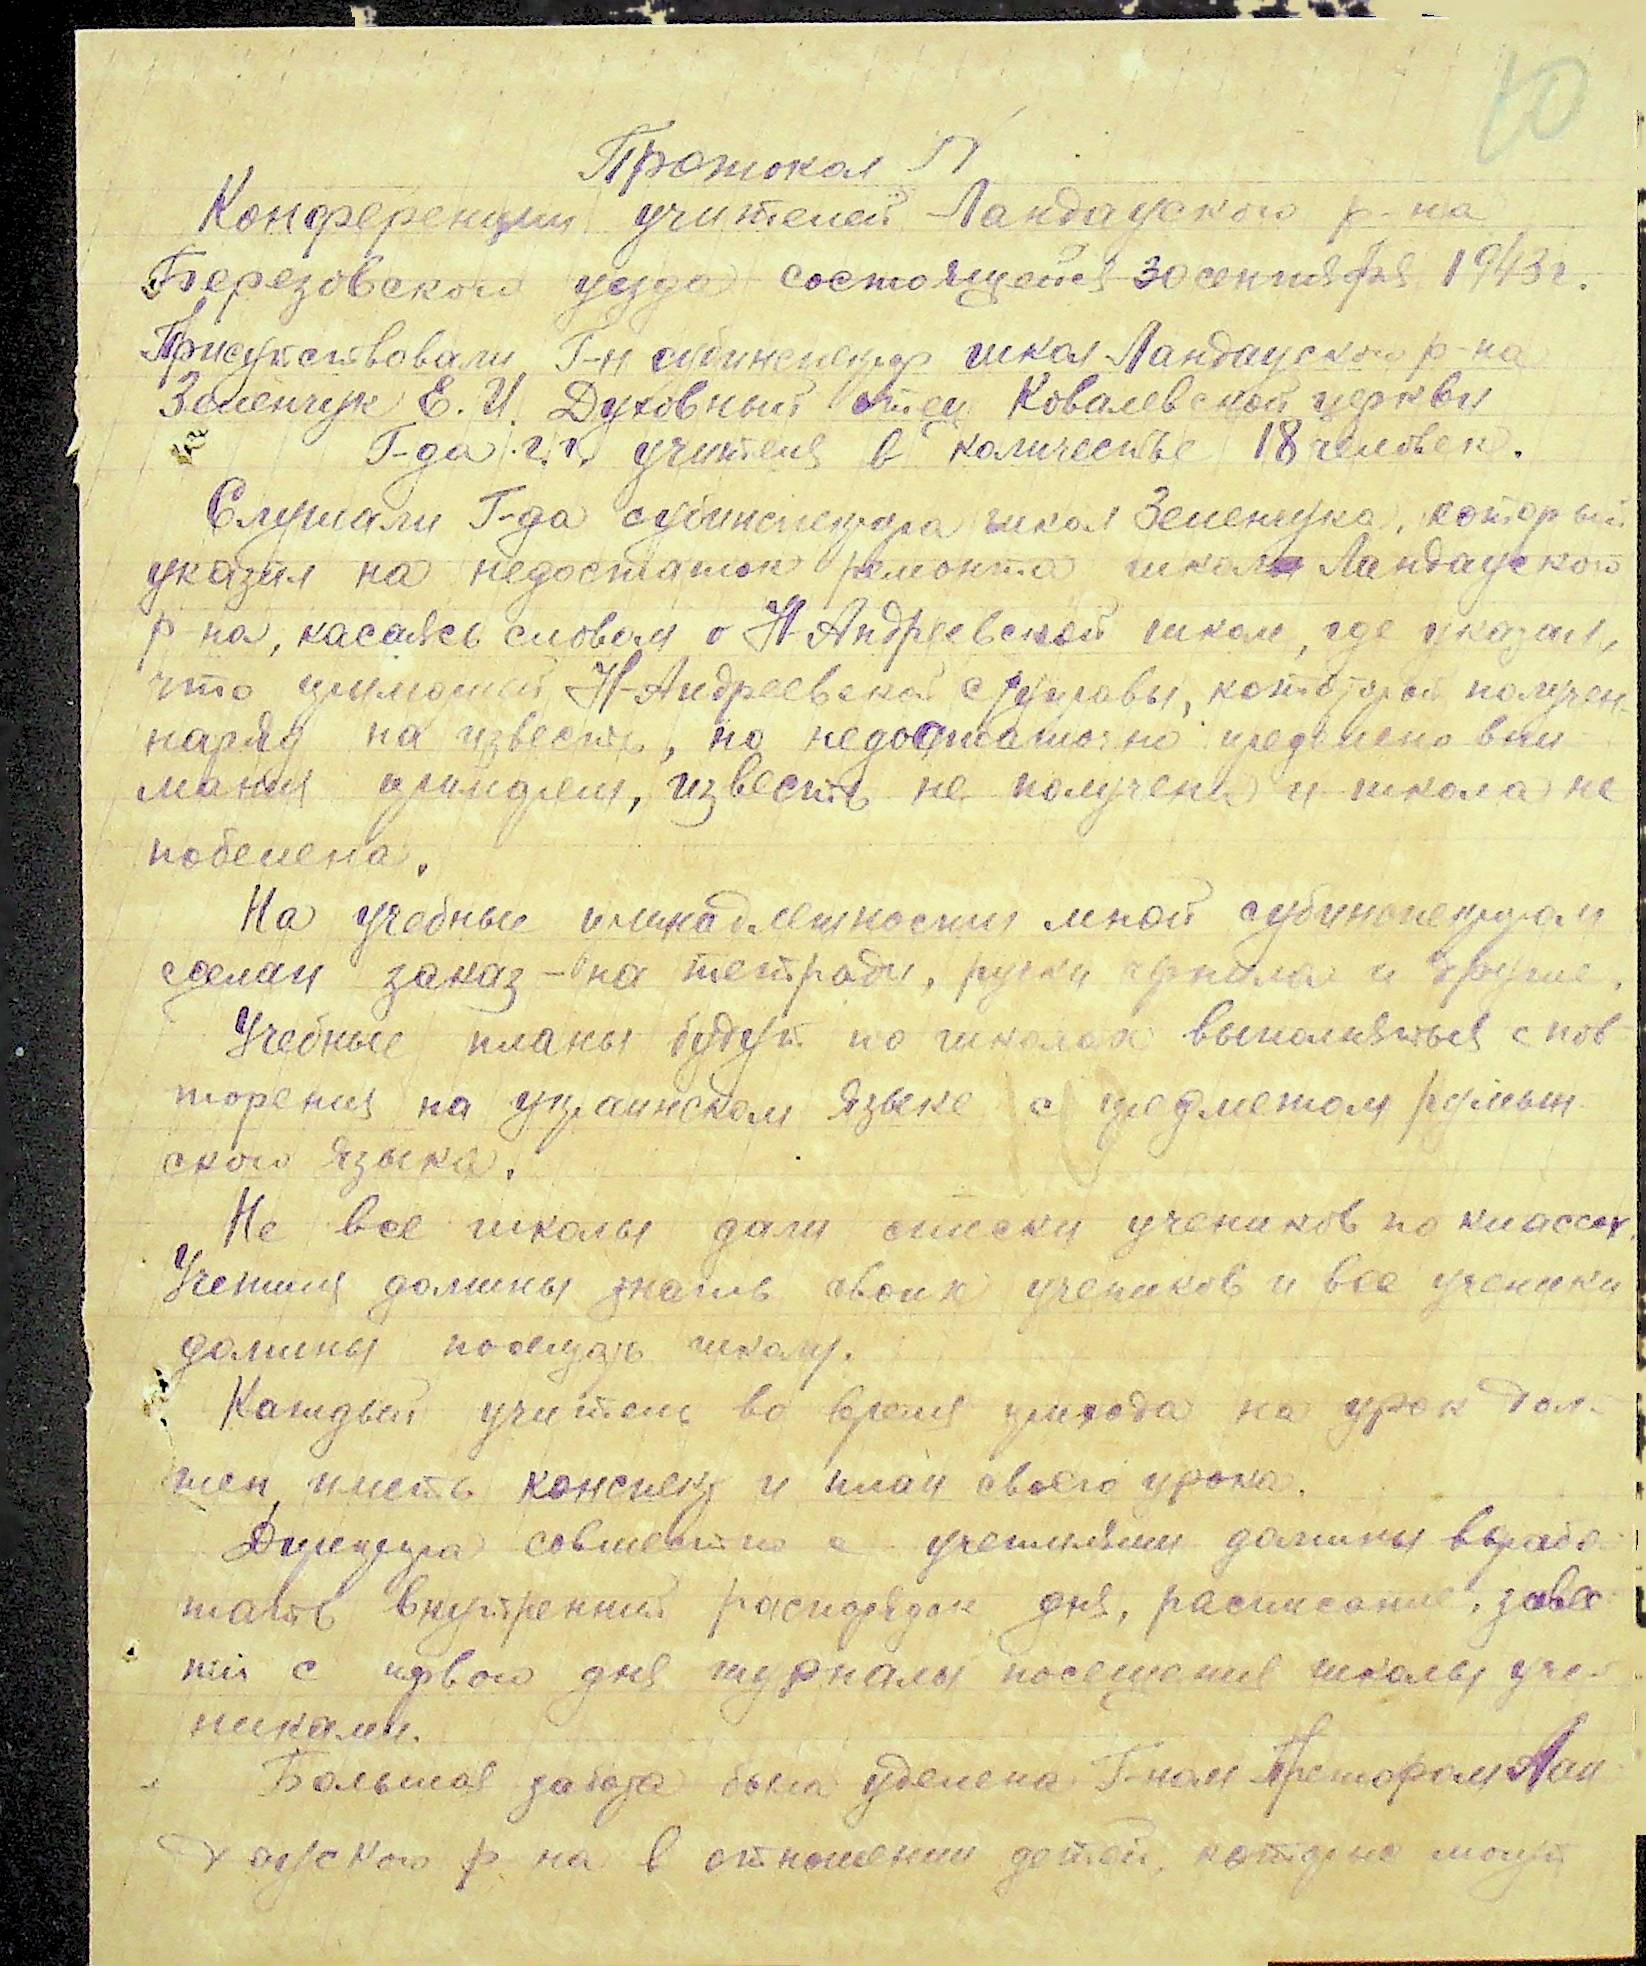 10
Протокол
Конференции учителей Ландауского р-на
Березовского уезда состоящейся 30 сентября 1943 г.
Присутствовали Г-н субинспектор школ Ландауского р-на
Зеленчук Е. И. Духовный отец Ковалевской церкви
Г-да г.г. учителя в количестве 18 человек.
Слушали Г-да субинспектора школ Зеленчука, который
указал на недостаток ремонта школ Ландауского
р-на, касаясь словам о Н-Андреевской школ, где указал,
что Н-Андреевской получен
наряд на известь, но недостаточно уделено вни-
мания известь не получена и школа не
побелена.
На учебные принадлежности мной субинспектором
сделан заказ - на тетради, ручки чернила и другие.
Учебные планы будут по школах выполняться с пов-
торения на украинском языке с предметом румын-
ского языка.
Не все школы дали списки учеников по классах.
Учителя должны знать своих учеников и все ученики
должны посещать школу.
Каждый учитель во время прихода на урок дол-
жен иметь конспект и план своего урока.
Директора совместно с учителями должны вырабо-
тать внутренний распорядок дня, расписание, завес-
ти с первого дня журналы посещения школы уче-
никами.
Большая забота была уделена Г-ном Претором Лан-
дауского р-на в отношении детей, которые могут